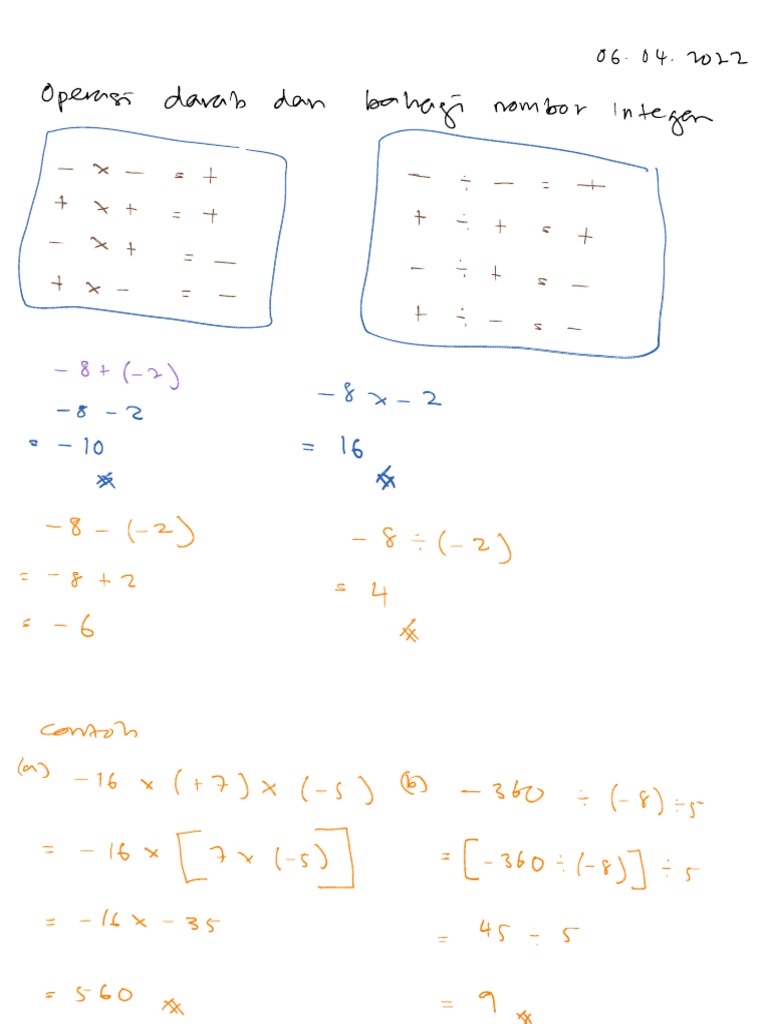 06.04.2022
Operasi darab dan bahagi nombor integer
- × - = +
+ × + = +
- × + = -
+ × - = -
- ÷ - = +
+ ÷ + = +
- ÷ + = -
+ ÷ - = -
-8+(-2)
-8-2
= -10
-8 × -2
= 16
-8-(-2)
= -8+2
= -6
-8÷(-2)
= 4
contoh
(a) -16 × (+7) × (-5)
= -16 × [7 × (-5)]
= -16 × -35
= 560
(b) -360 ÷ (-8) ÷ 5
= [-360 ÷ (-8)] ÷ 5
= 45 ÷ 5
= 9